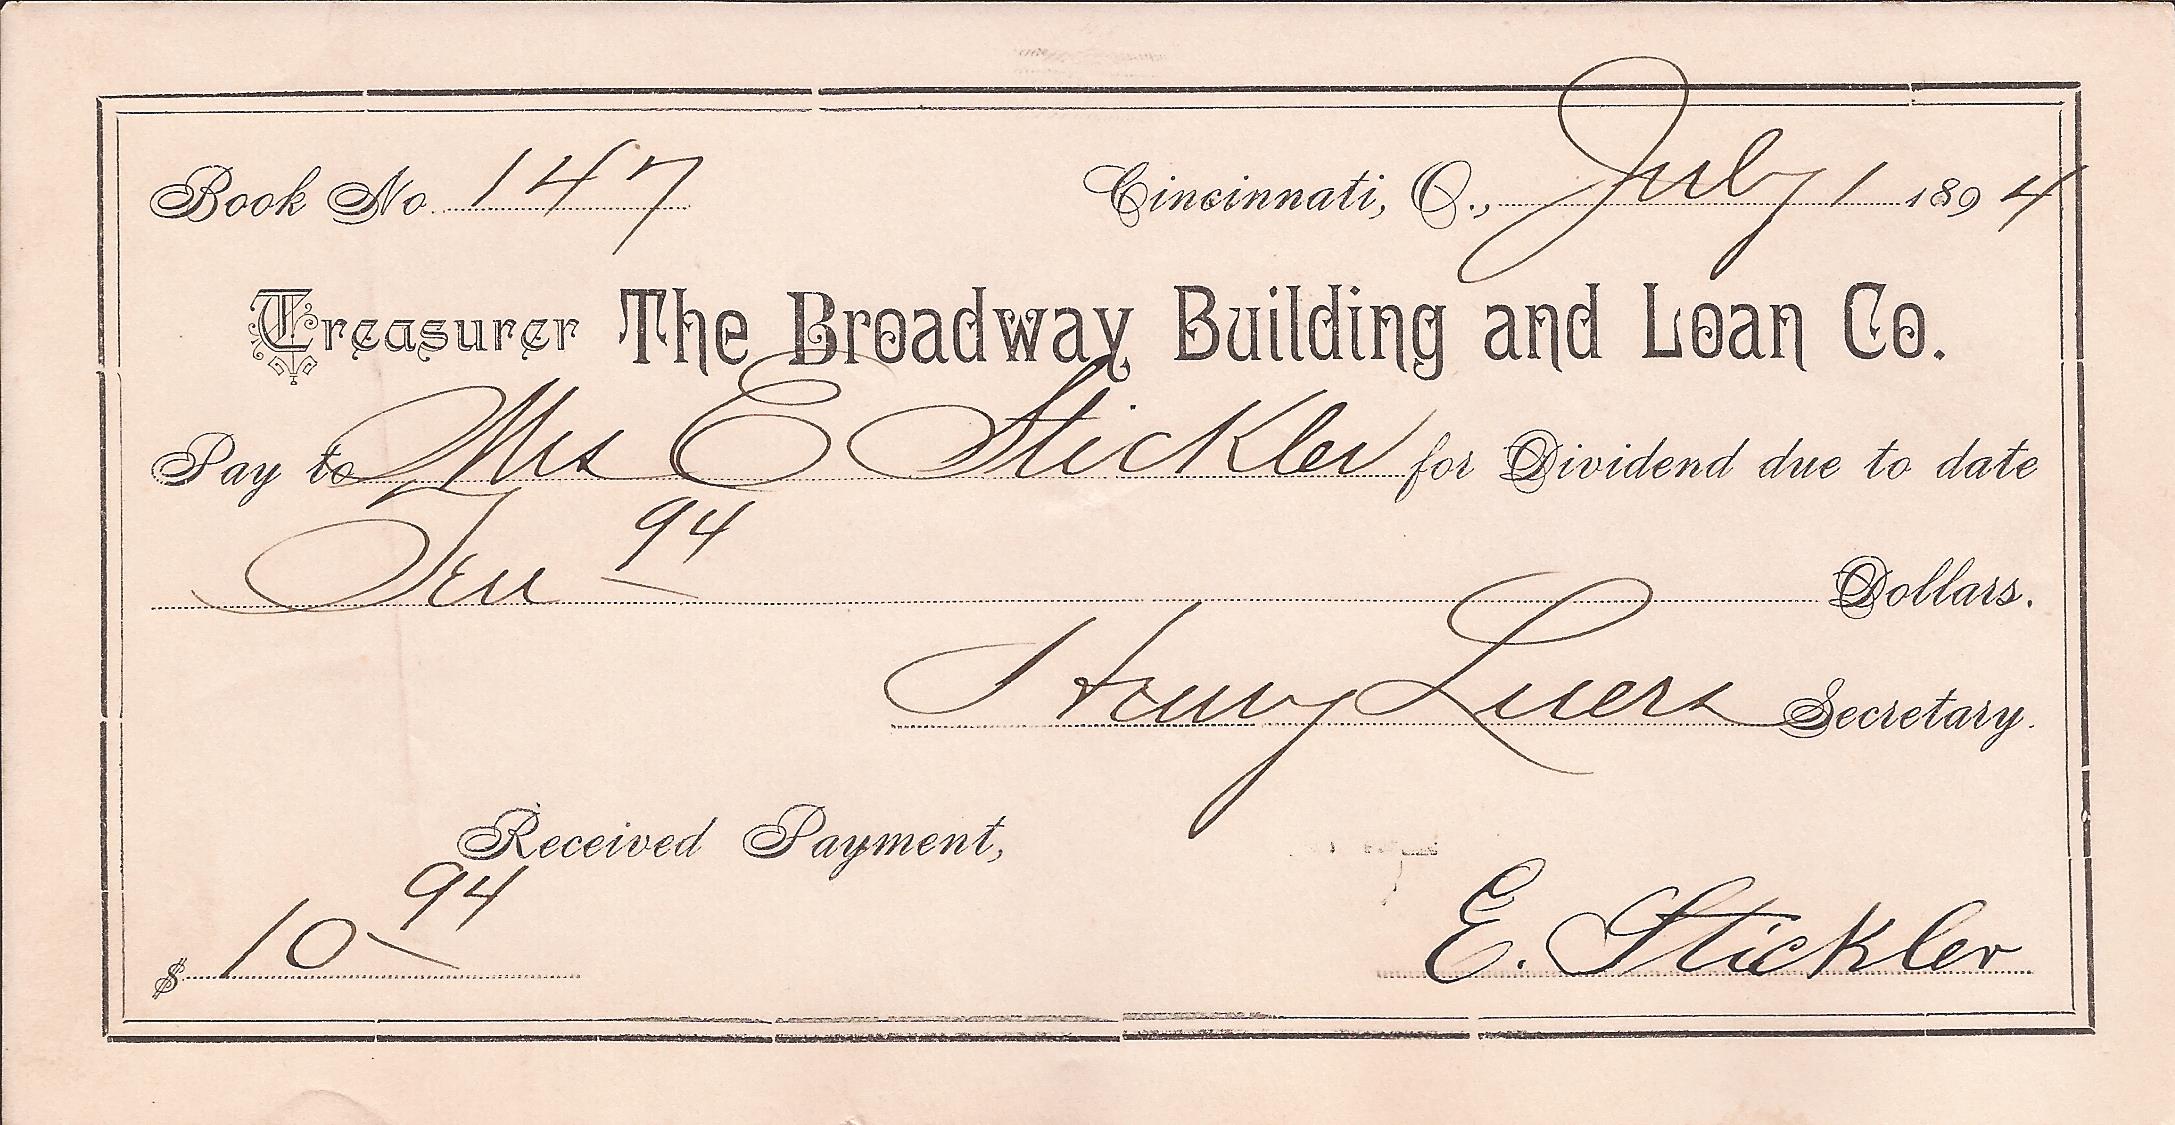 Book No. 147 Cincinnati, O., July 1 1894
Treasurer The Broadway Building and Loan Co.
Pay to Mrs E Stickler for Dividend due to date
Ten 94 Dollars.
Henry Luers Secretary.
Received Payment,
$ 10 94 E. Stickler